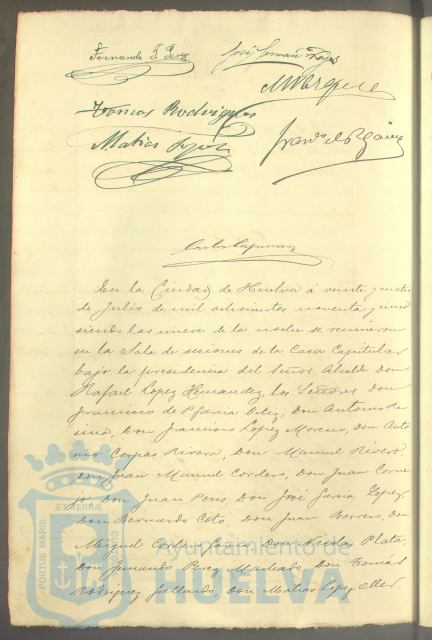 Fernando P. Perez
José Hernan Lopez
M Marquez
Tomas Rodriguez
Matias Lopez
En la Ciudad de Huelva á veinte y cuatro
de Julio de mil ochocientos noventa y cinco
siendo las nueve de la noche se reunieron
en la Sala de sesiones de la Casa Capitular
bajo la presidencia del Señor Alcalde Don
Rafael Lopez Hernandez, los Señores Don
Francisco de P. Garcia Ortiz, Don Antonio Re
ina, Don Francisco Lopez Moreno, Don Anto
nio Corpas Rivera, Don Manuel Rivero,
Don Juan Manuel Cordero, Don Juan Corne
jo, Don Juan Pons, Don José Garcia Lopez,
Don Bernardo Coto, Don Juan Borrero, Don
Miguel Cordero Don Nicola Plata,
Don Fernando Perez Machado, Don Tomás
Rodriguez Gallardo, Don Matias Lopez Oller
PORTUS MARIS ET TERRÆ CUSTODIA
Ayuntamiento de
HUELVA